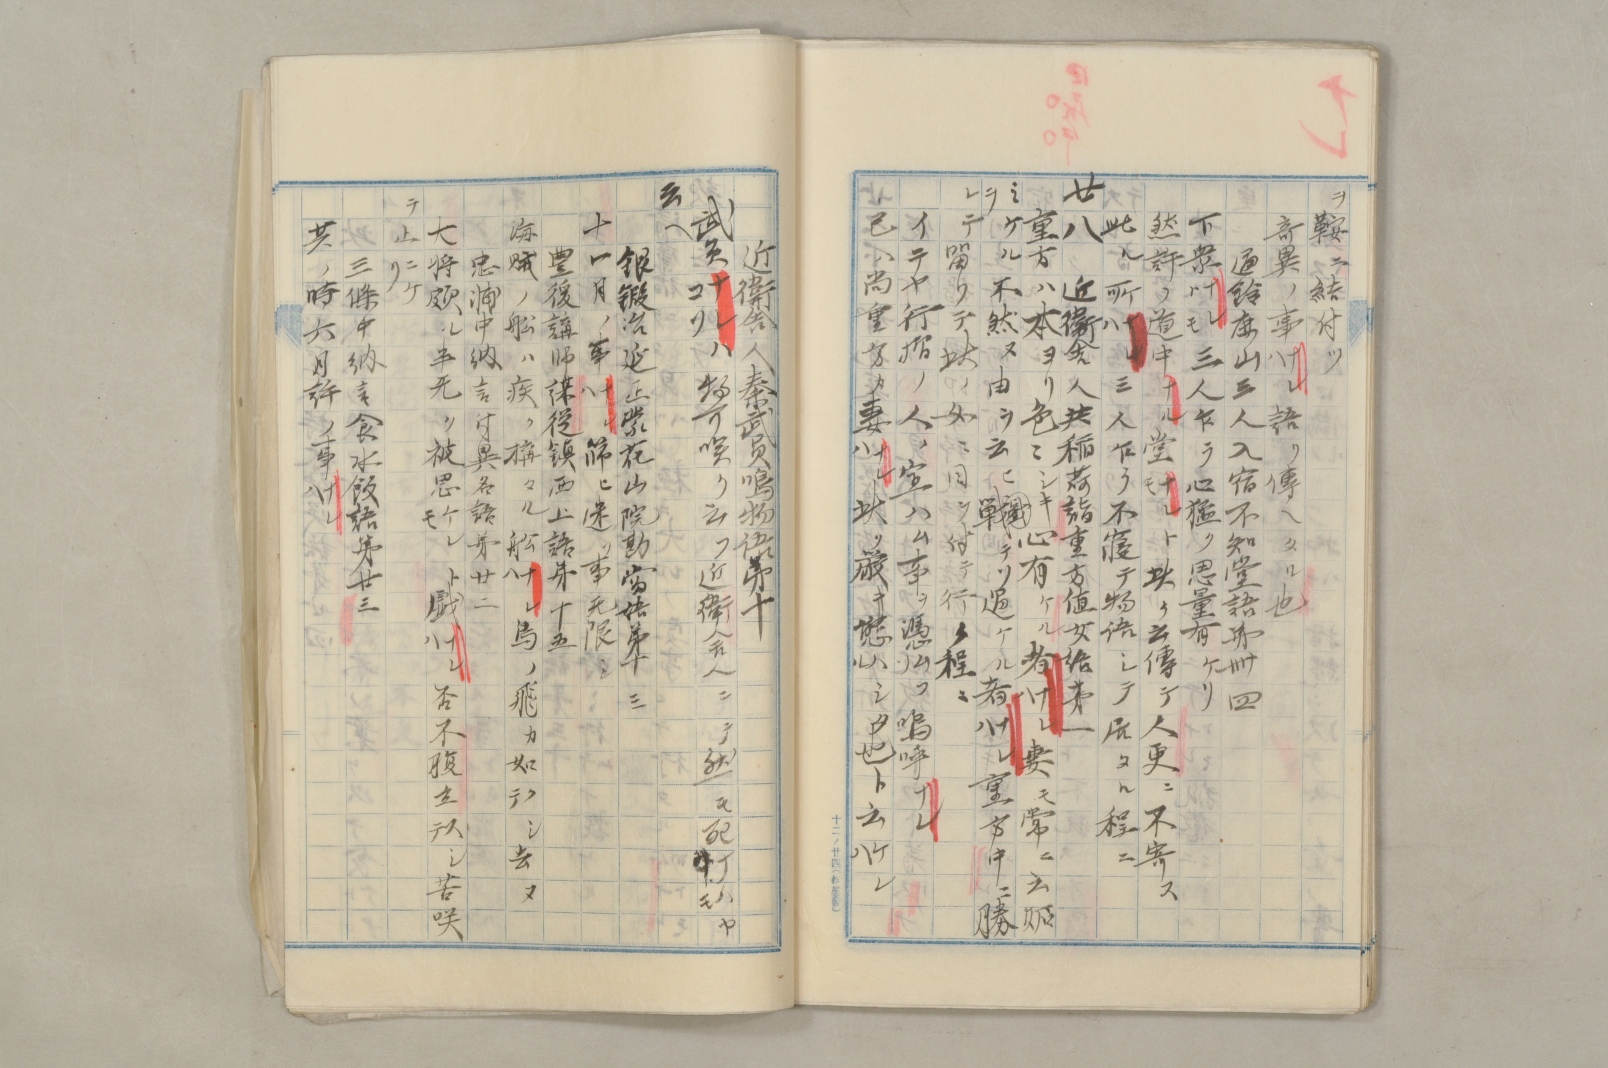 ナレ
ヲ鞍ニ結付ツ
奇異ノ事ナレハ語リ傳ヘタル也
通鈴鹿山三人入宿不知堂語第卌四
下衆ナレトモ三人乍ラ心猛ク思量有ケリ
然許ノ道中ナル堂ナレトモ此ク云傳テ人更ニ不寄ス
此ル所ナレハ三人乍ラ不寢テ物語シテ居タル程ニ
廿八 近衛舎人共稲荷詣重方値女語第一
重方ハ本ヨリ色ミシキ心有ケル者ナレハ妻モ常ニ云妬
ミケル不然ヌ由ヲ云ヒ戰テゾ過ケル者ナレハ重方中ニ勝
レテ留リテ此ノ女ニ目ヲ付テ行ク程ニ
イテヤ行摺ノ人ノ宣ハム事ヲ憑ムコソ嗚呼ナレ
己ハ尚重方カ妻ナレハ此ク厳キ態ハシタル也ト云ケレハ
近衛舎人秦武員鳴物語第十
武員ナレハコソ物可咲ク云フ近衛舎人ニテ然モ死ナハヤトモ
云ヘ
銀鍛冶延正蒙花山院勘當語第十三
十一月ノ事ナレハ篩ヒ迷フ事无限シ
豊後講師謀従鎮西上語第十五
海賊ノ船ハ疾ク構タル船ナレハ鳥ノ飛カ如クシテ去ヌ
忠輔中納言付異名語第廿二
大将頗ル半无ク被思ケレトモ戯ナレハ否不腹立デ只シ苦咲
テ止ニケリ
三條中納言食水飯語第廿三
其ノ時六月許ノ事ナレハ